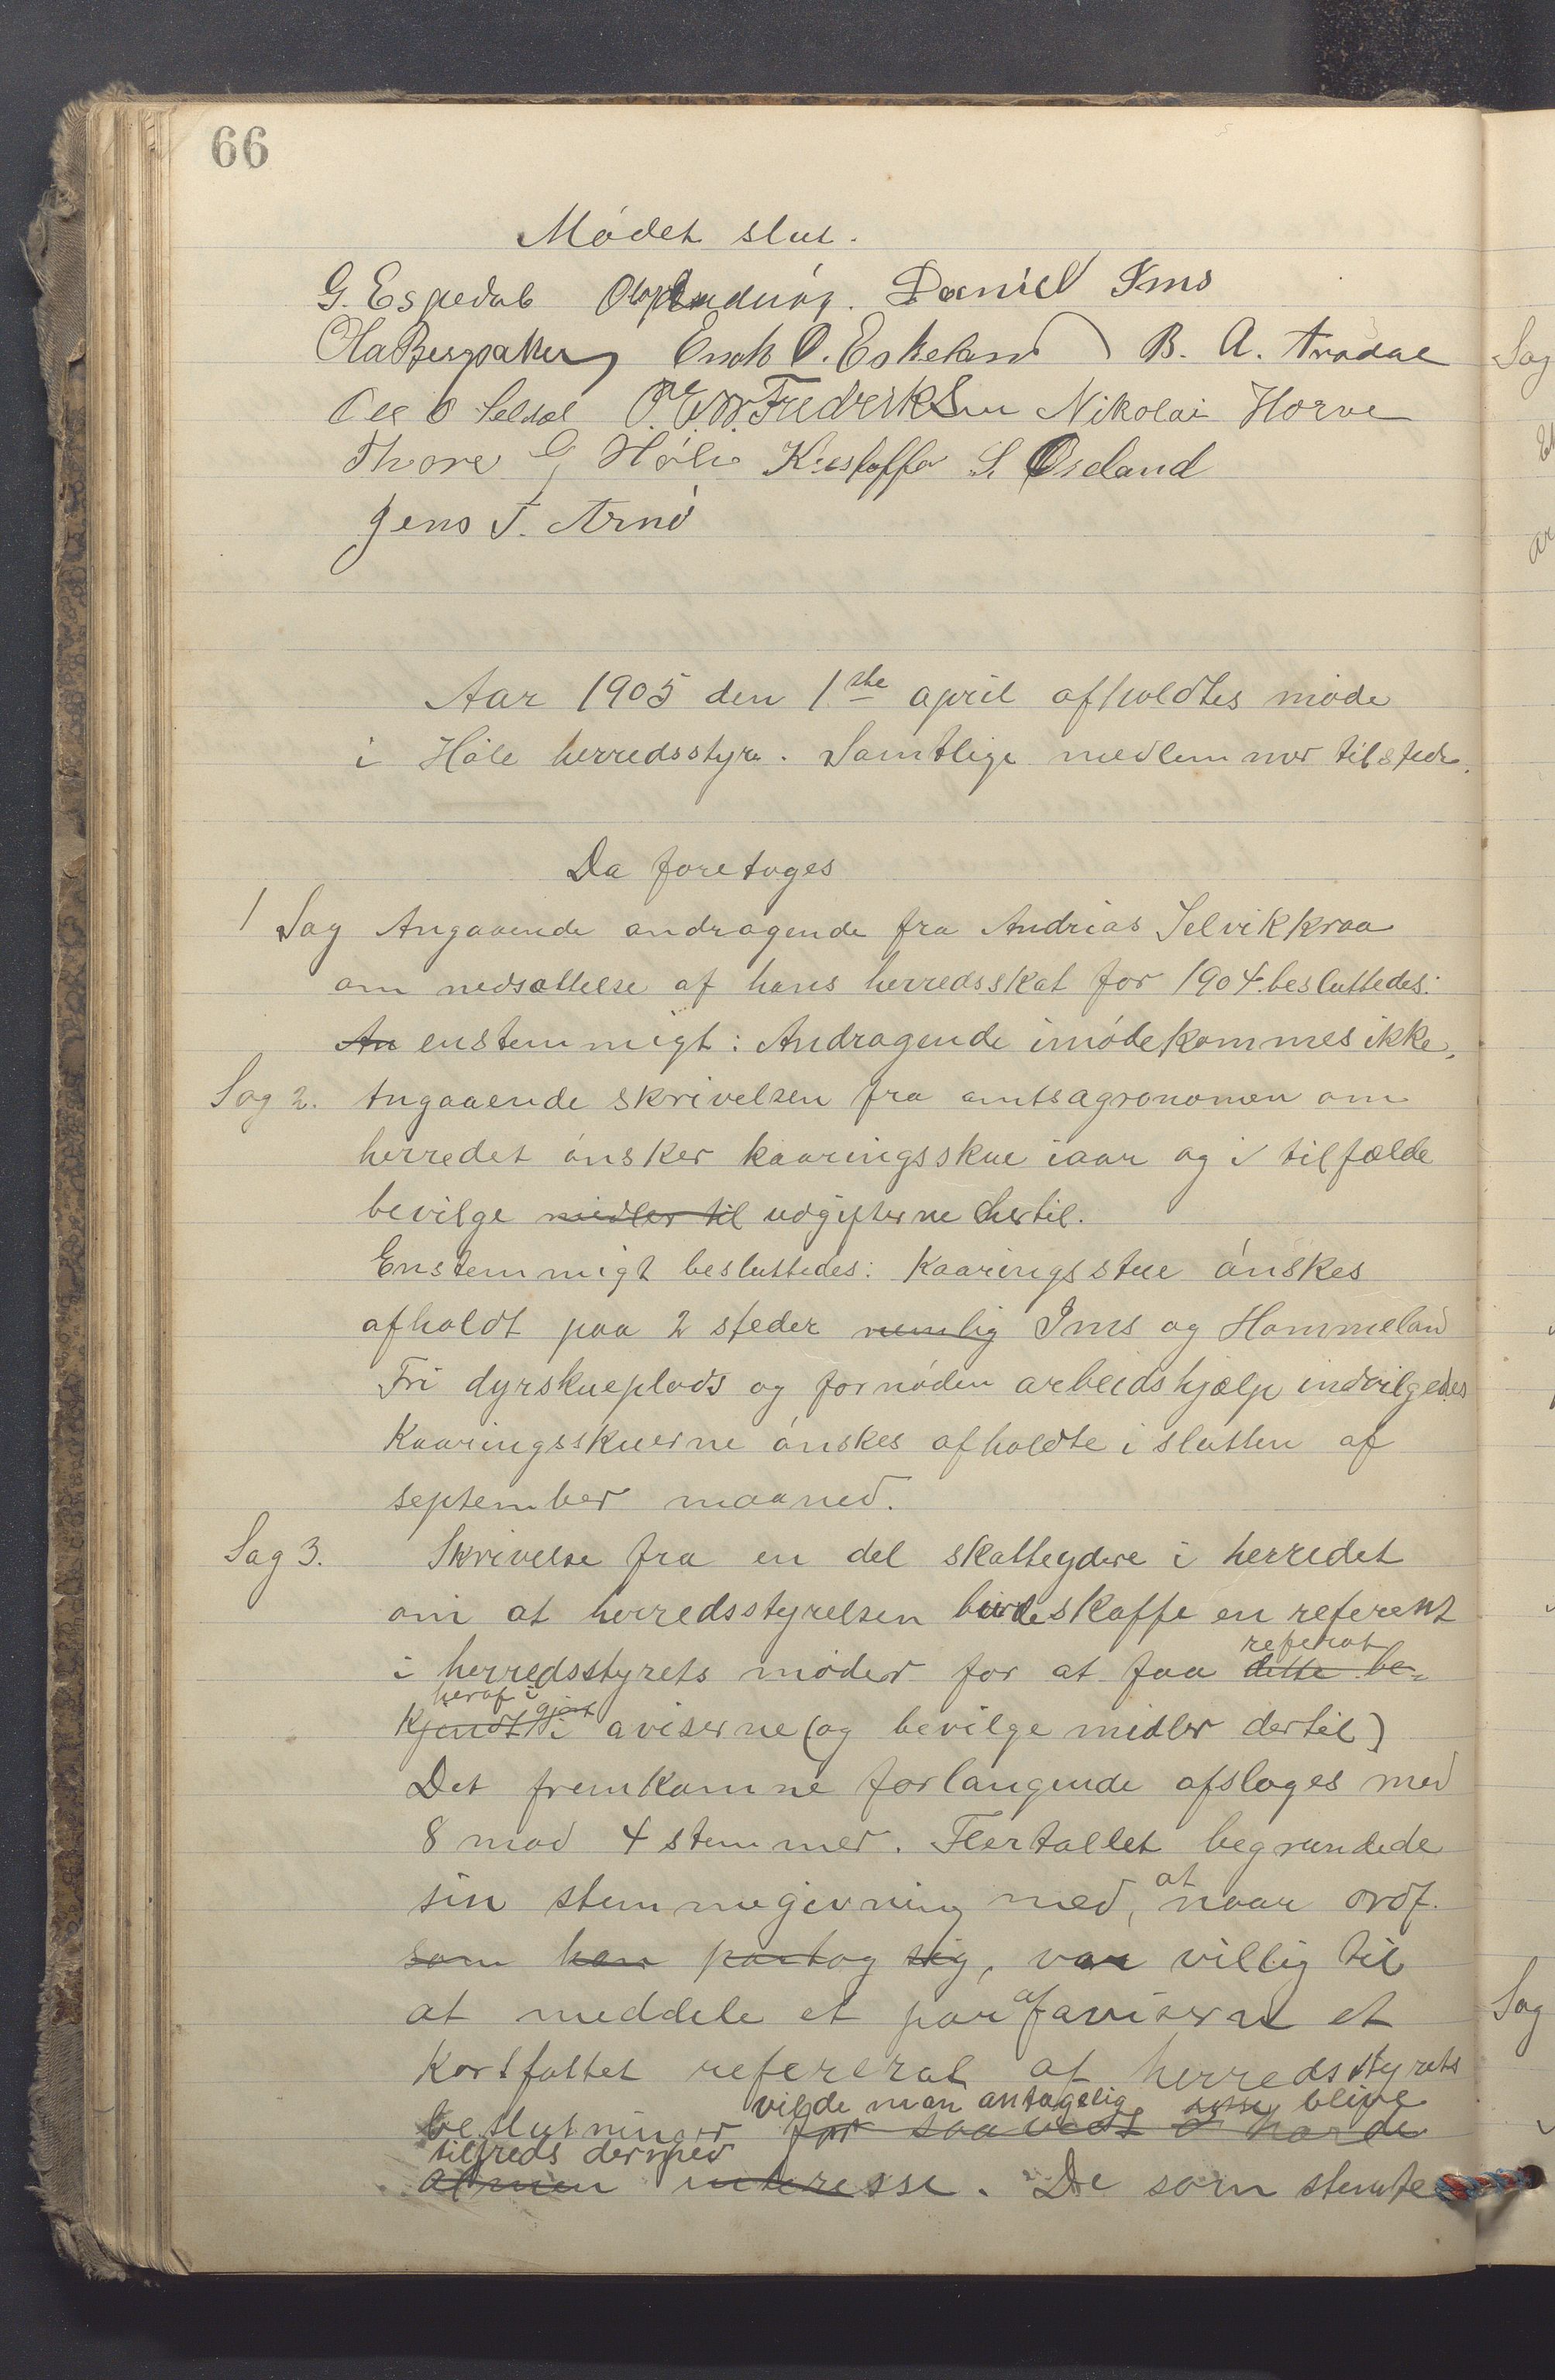 66
Mødet slut.
G. Espedal Daniel Ims
Enok O. Eskeland B. A. Aradal
Ole O Seldal O. E. W. Fredriksen Nikolai Horve
Thore G Høle Kristoffer S. Øseland
Jens T. Arnø
Aar 1905 den 1ste april afholdtes møde
i Høle herredsstyre. Samtlige medlemmer tilstede.
Da foretoges
1 Sag Angaaende andragende fra Andrias Selvikkraa
om nedsættelse af hans herredsskat for 1904 besluttedes:
An enstemmigt: Andragende imødekommes ikke.
Sag 2. Angaaende skrivelsen fra amtsagronomen om
herredet ønsker kaaringsskue iaar og i tilfælde
bevilge midler til udgifterne hertil.
Enstemmigt besluttedes: Kaaringsskue ønskes
afholdt paa 2 steder nemlig Ims og Hommeland
Fri dyrskueplads og fornøden arbeidshjælp indvilgedes
Kaaringsskuerne ønskes afholdte i slutten af
september maaned.
Sag 3. Skrivelse fra en del skatteydere i herredet
om at herredsstyrelsen burde skaffe en referent
i herredsstyrets møder for at faa dette be-
referat
kjendtgjort i aviserne (og bevilge midler dertil)
heraf i
Det fremkomne forlangende afsloges med
8 mod 4 stemmer. Flertallet begrundede
sin stemmegivning med, at naar ordf.
som han paatog sig, var villig til
at meddele et par af aviserne et
kortfattet refererat af herredsstyrets
vilde man antagelig blive
beslutninger for saavidt de havde
tilfreds dermed
almen interesse. De som stemte
Sag
Sag